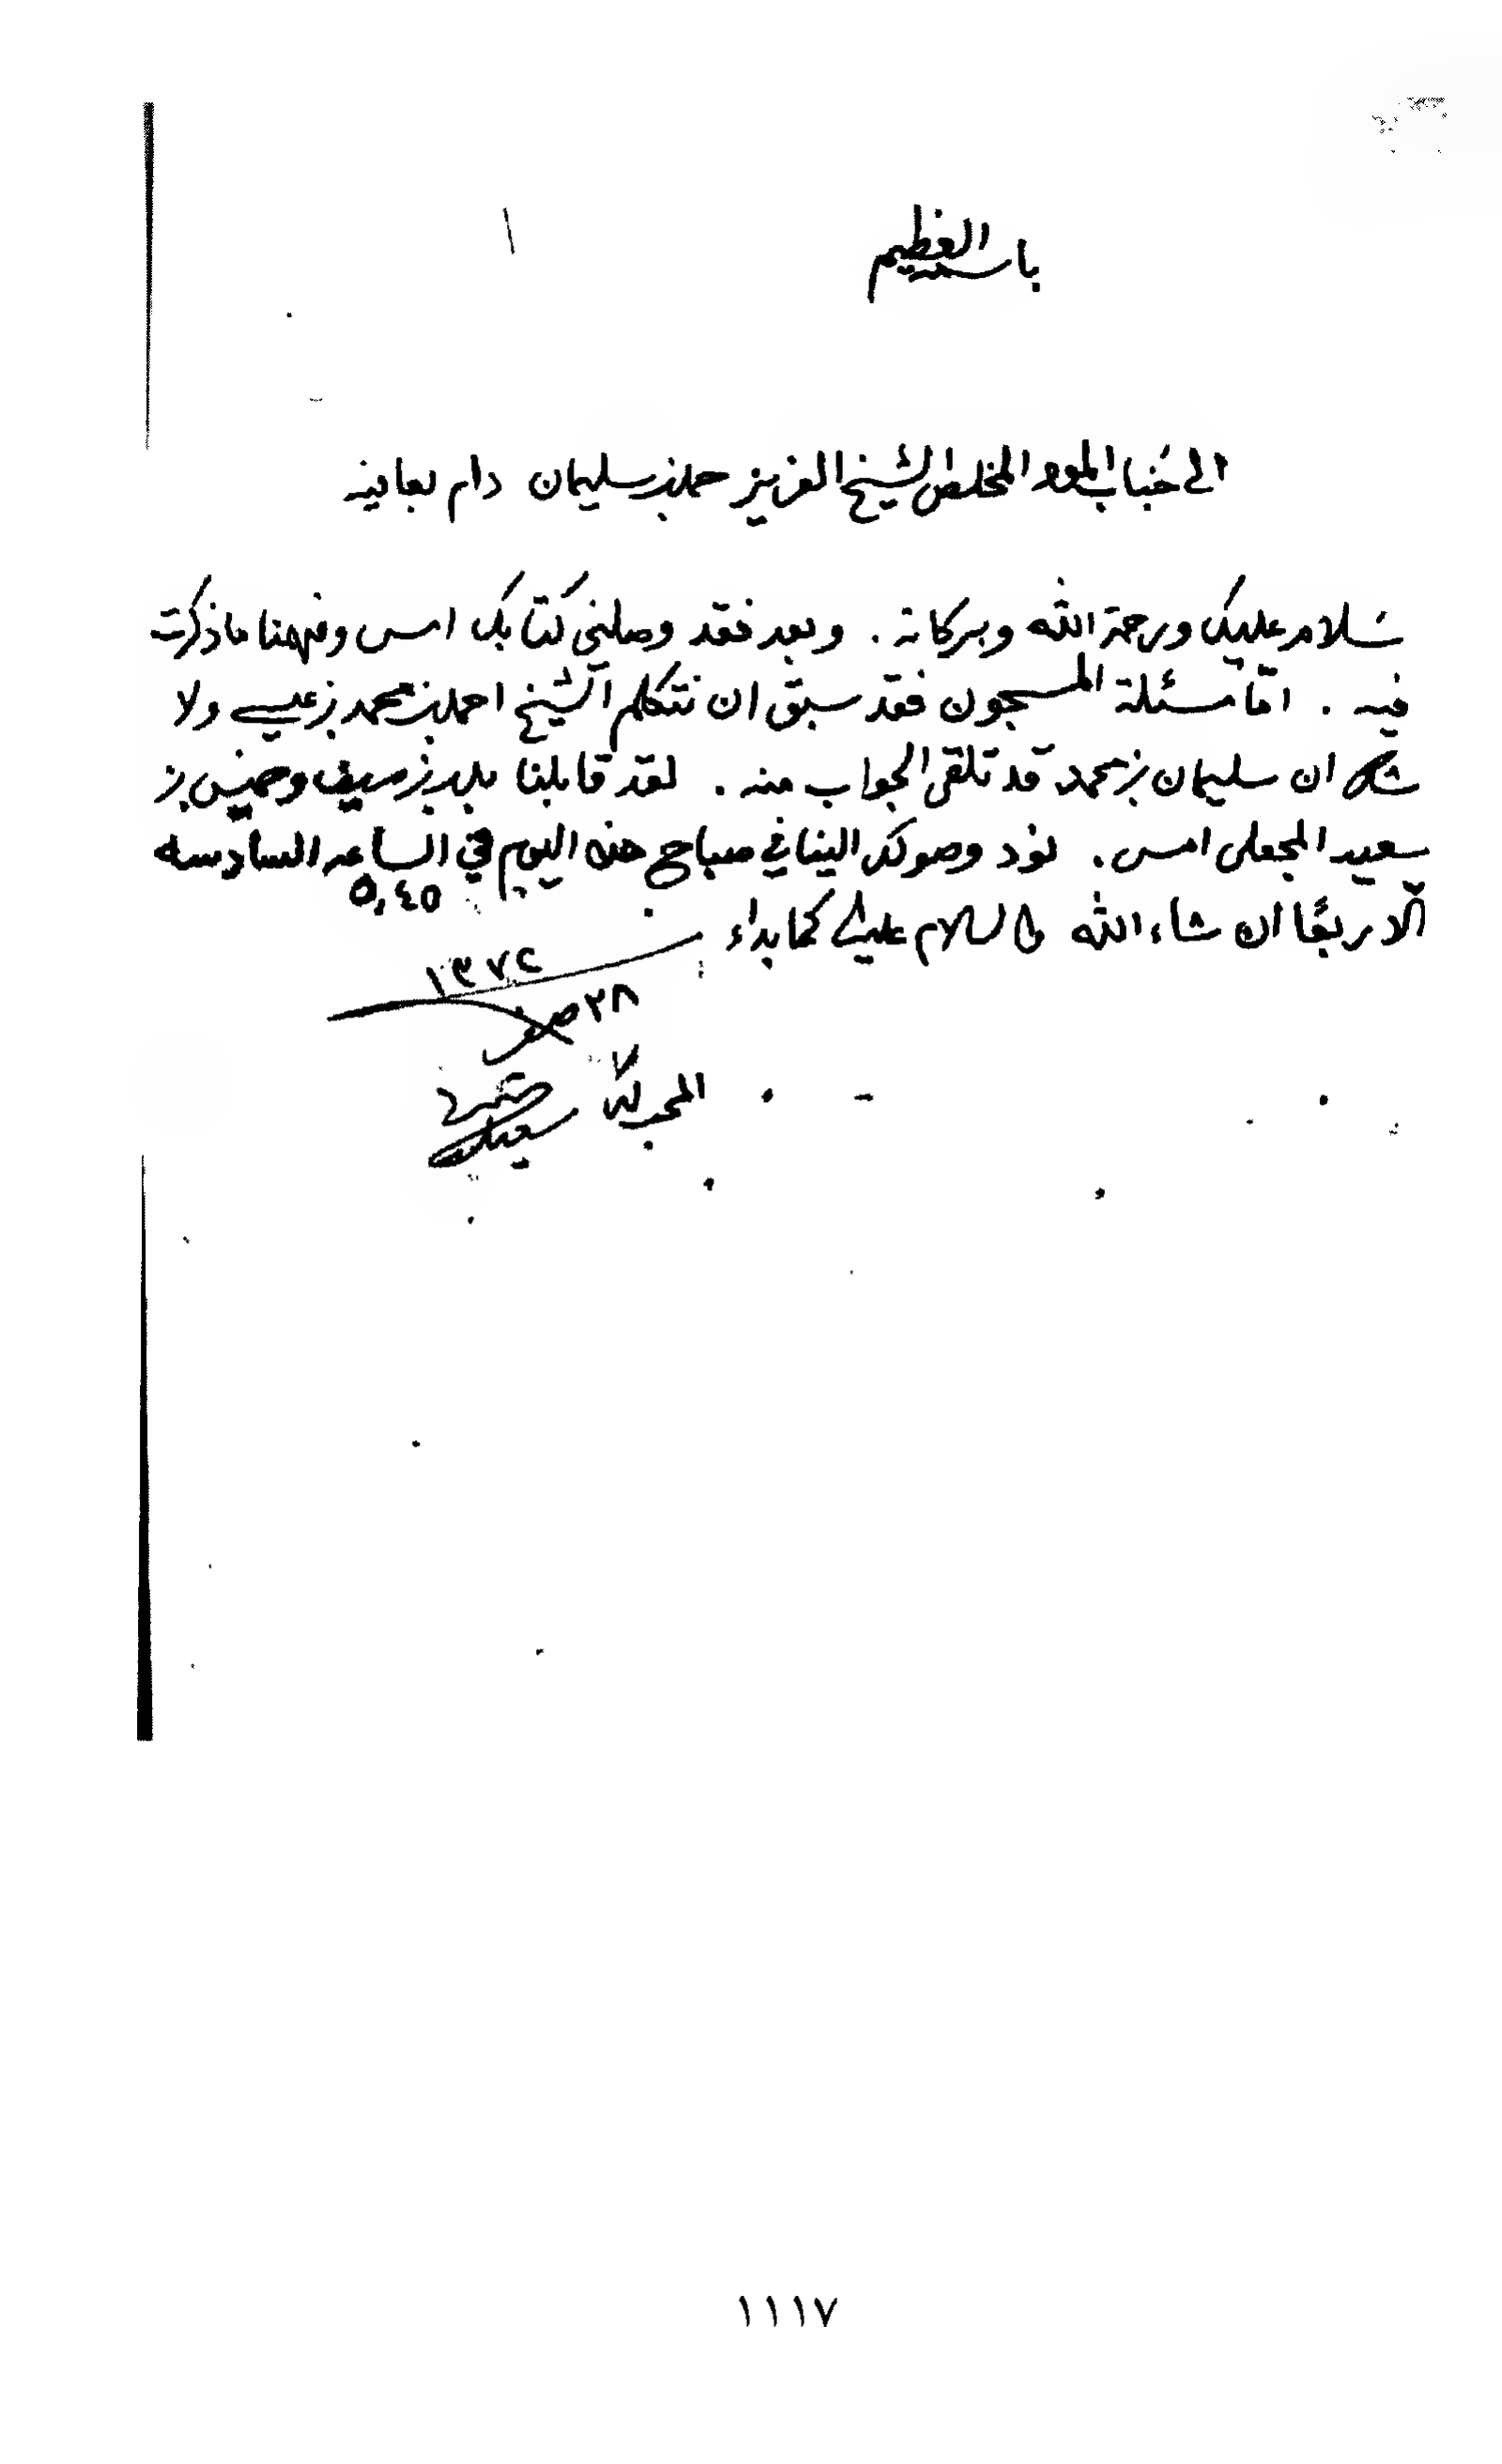 باسمه العظيم
الى جناب المود المخلص الشيخ العزيز حمد بن سليمان دام بعافيه
سلام عليك ورحمة الله وبركاته . وبعد فقد وصلني كتابك امس وفهمنا ما ذكرت
فيه . امّا مسئلة المسجون فقد سبق ان نتكلم الشيخ احمد بن محمد بن عيسى ولا
شك ان سليمان بن محمد قد تلقى الجواب منه . لقد قابلنا بن سيف وخميس بن
سعيد المجعلى امس . نود وصولك الينا في صباح هذه اليوم في الساعه السادسه
٥,٤٥
الا ربعًا ان شاء الله والسلام عليك كما بداء
١٣٧٢
٢٨ صفر
المحب لك
سعيد
١١١٧